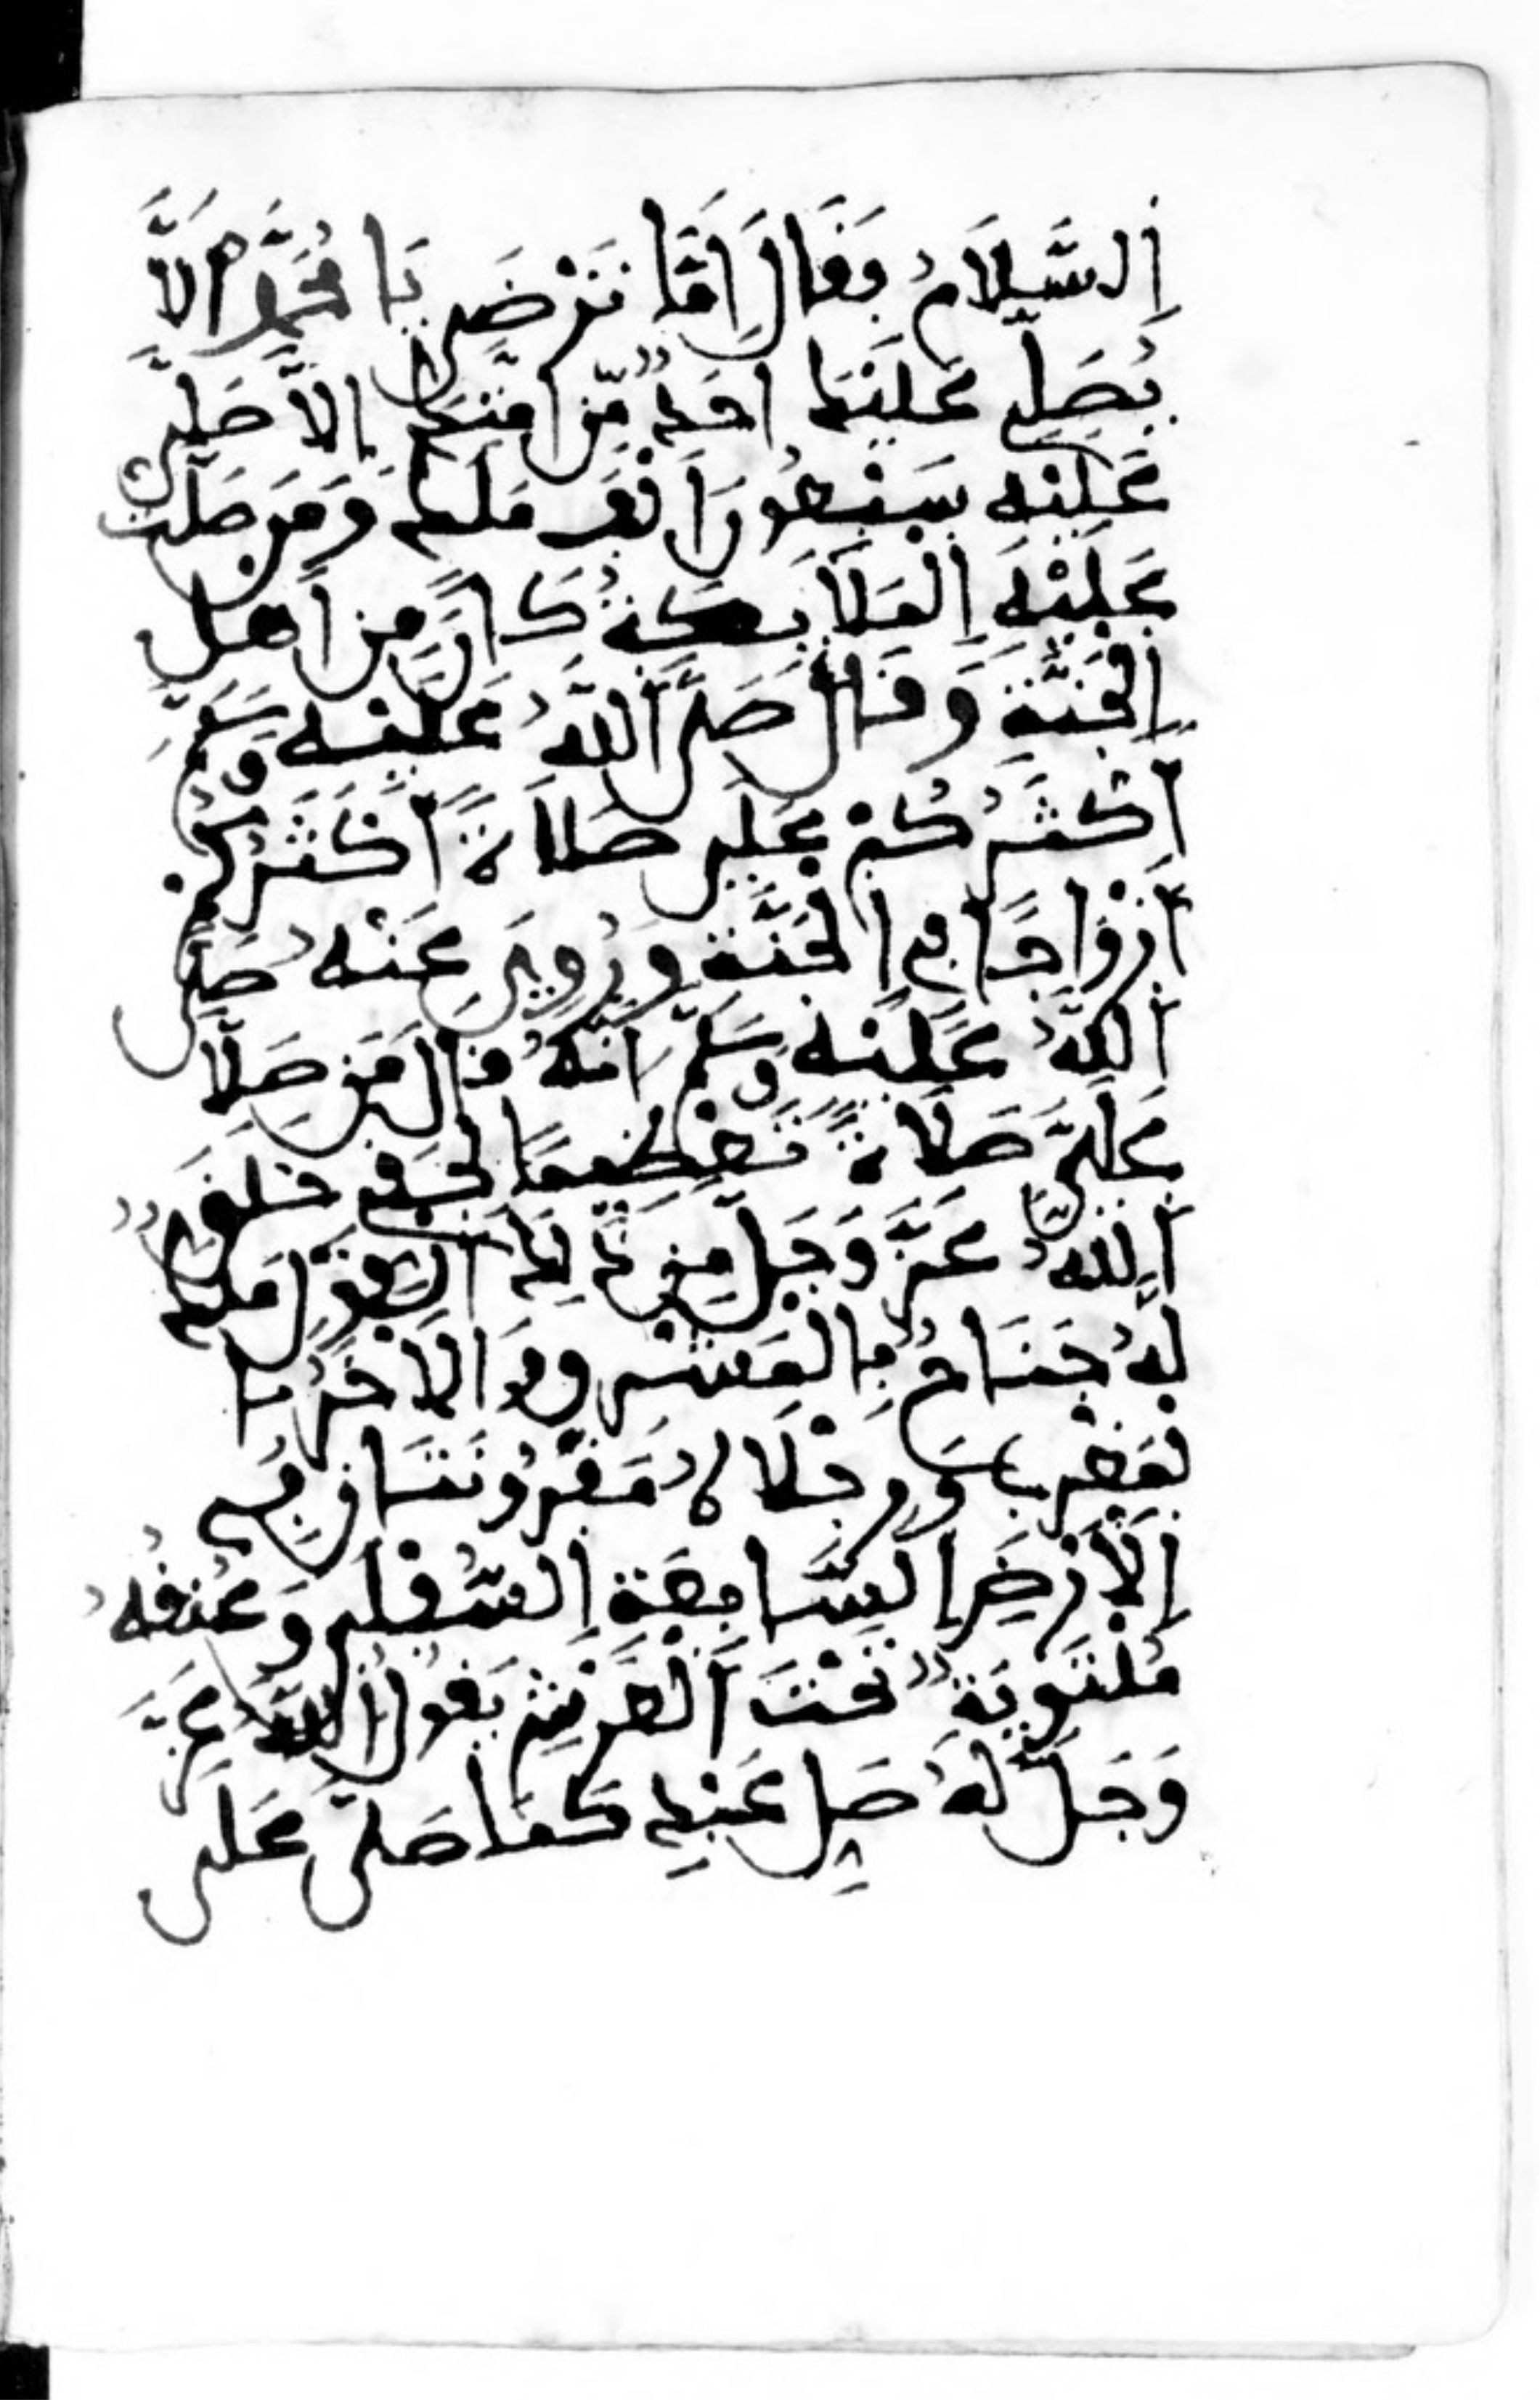 اِلسَّلَامُ وَفَالَ اَمَا تَرْضَى يَا مُحَمَّدُ اَلاَّ
يُصَلِّى عَلَيْكَ اَحَدٌ مِّنْ اُمَّتِكَ اِلاَّ صَلَّى
عَلَيْهِ سَبْعُونَ اَلْفَ مَلَكٍ وَمَن صَلَّتْ
عَلَيْهِ اِلْمَلَايِكَةُ كَانَ مِنْ اَهْلِ
اِلْجَنَّةِ وَفَالَ صَلَّى اَللَّهُ عَلَيْهِ وَسَلَّمَ
أَكْثَرُكُمْ عَلَيَّ صَلَاةً أَكْثَرُكُمْ
أَزْوَاجًا فِى اِلْجَنَّةِ وَرُوِيَ عَنْهُ صَلَّى
اَللَّهُ عَلَيْهِ وَسَلَّمَ اَنَّهُ فَالَ مَن صَلَّا
عَلَيَّ صَلَاةً تَعْظِيمًا لِّحَقِّى خَلَقَ
اَللَّهُ عَزَّ وَجَلَّ مِن ذَلِكَ اَلْقَوْلِ مَلَكًا
لَهُ جَنَاحٌ بِالْمَشْرِقِ وَالاَخَرُ بِا
لْمَغْرِبِ وَرِجْلَاهُ مَقْرُونَتَانِ فِى
اِلاَرْضِ اِلسَّابِعَةِ اِلسُّفْلَى وَعُنُقُهُ
مُلْتَوِيَةٌ تَحْتَ اَلْعَرْشِ يَقُولُ اَللَّهُ عَزَّ
وَجَلَّ لَهُ صَلِّ عَلَى عَبْدِى كَمَا صَلَّى عَلَى